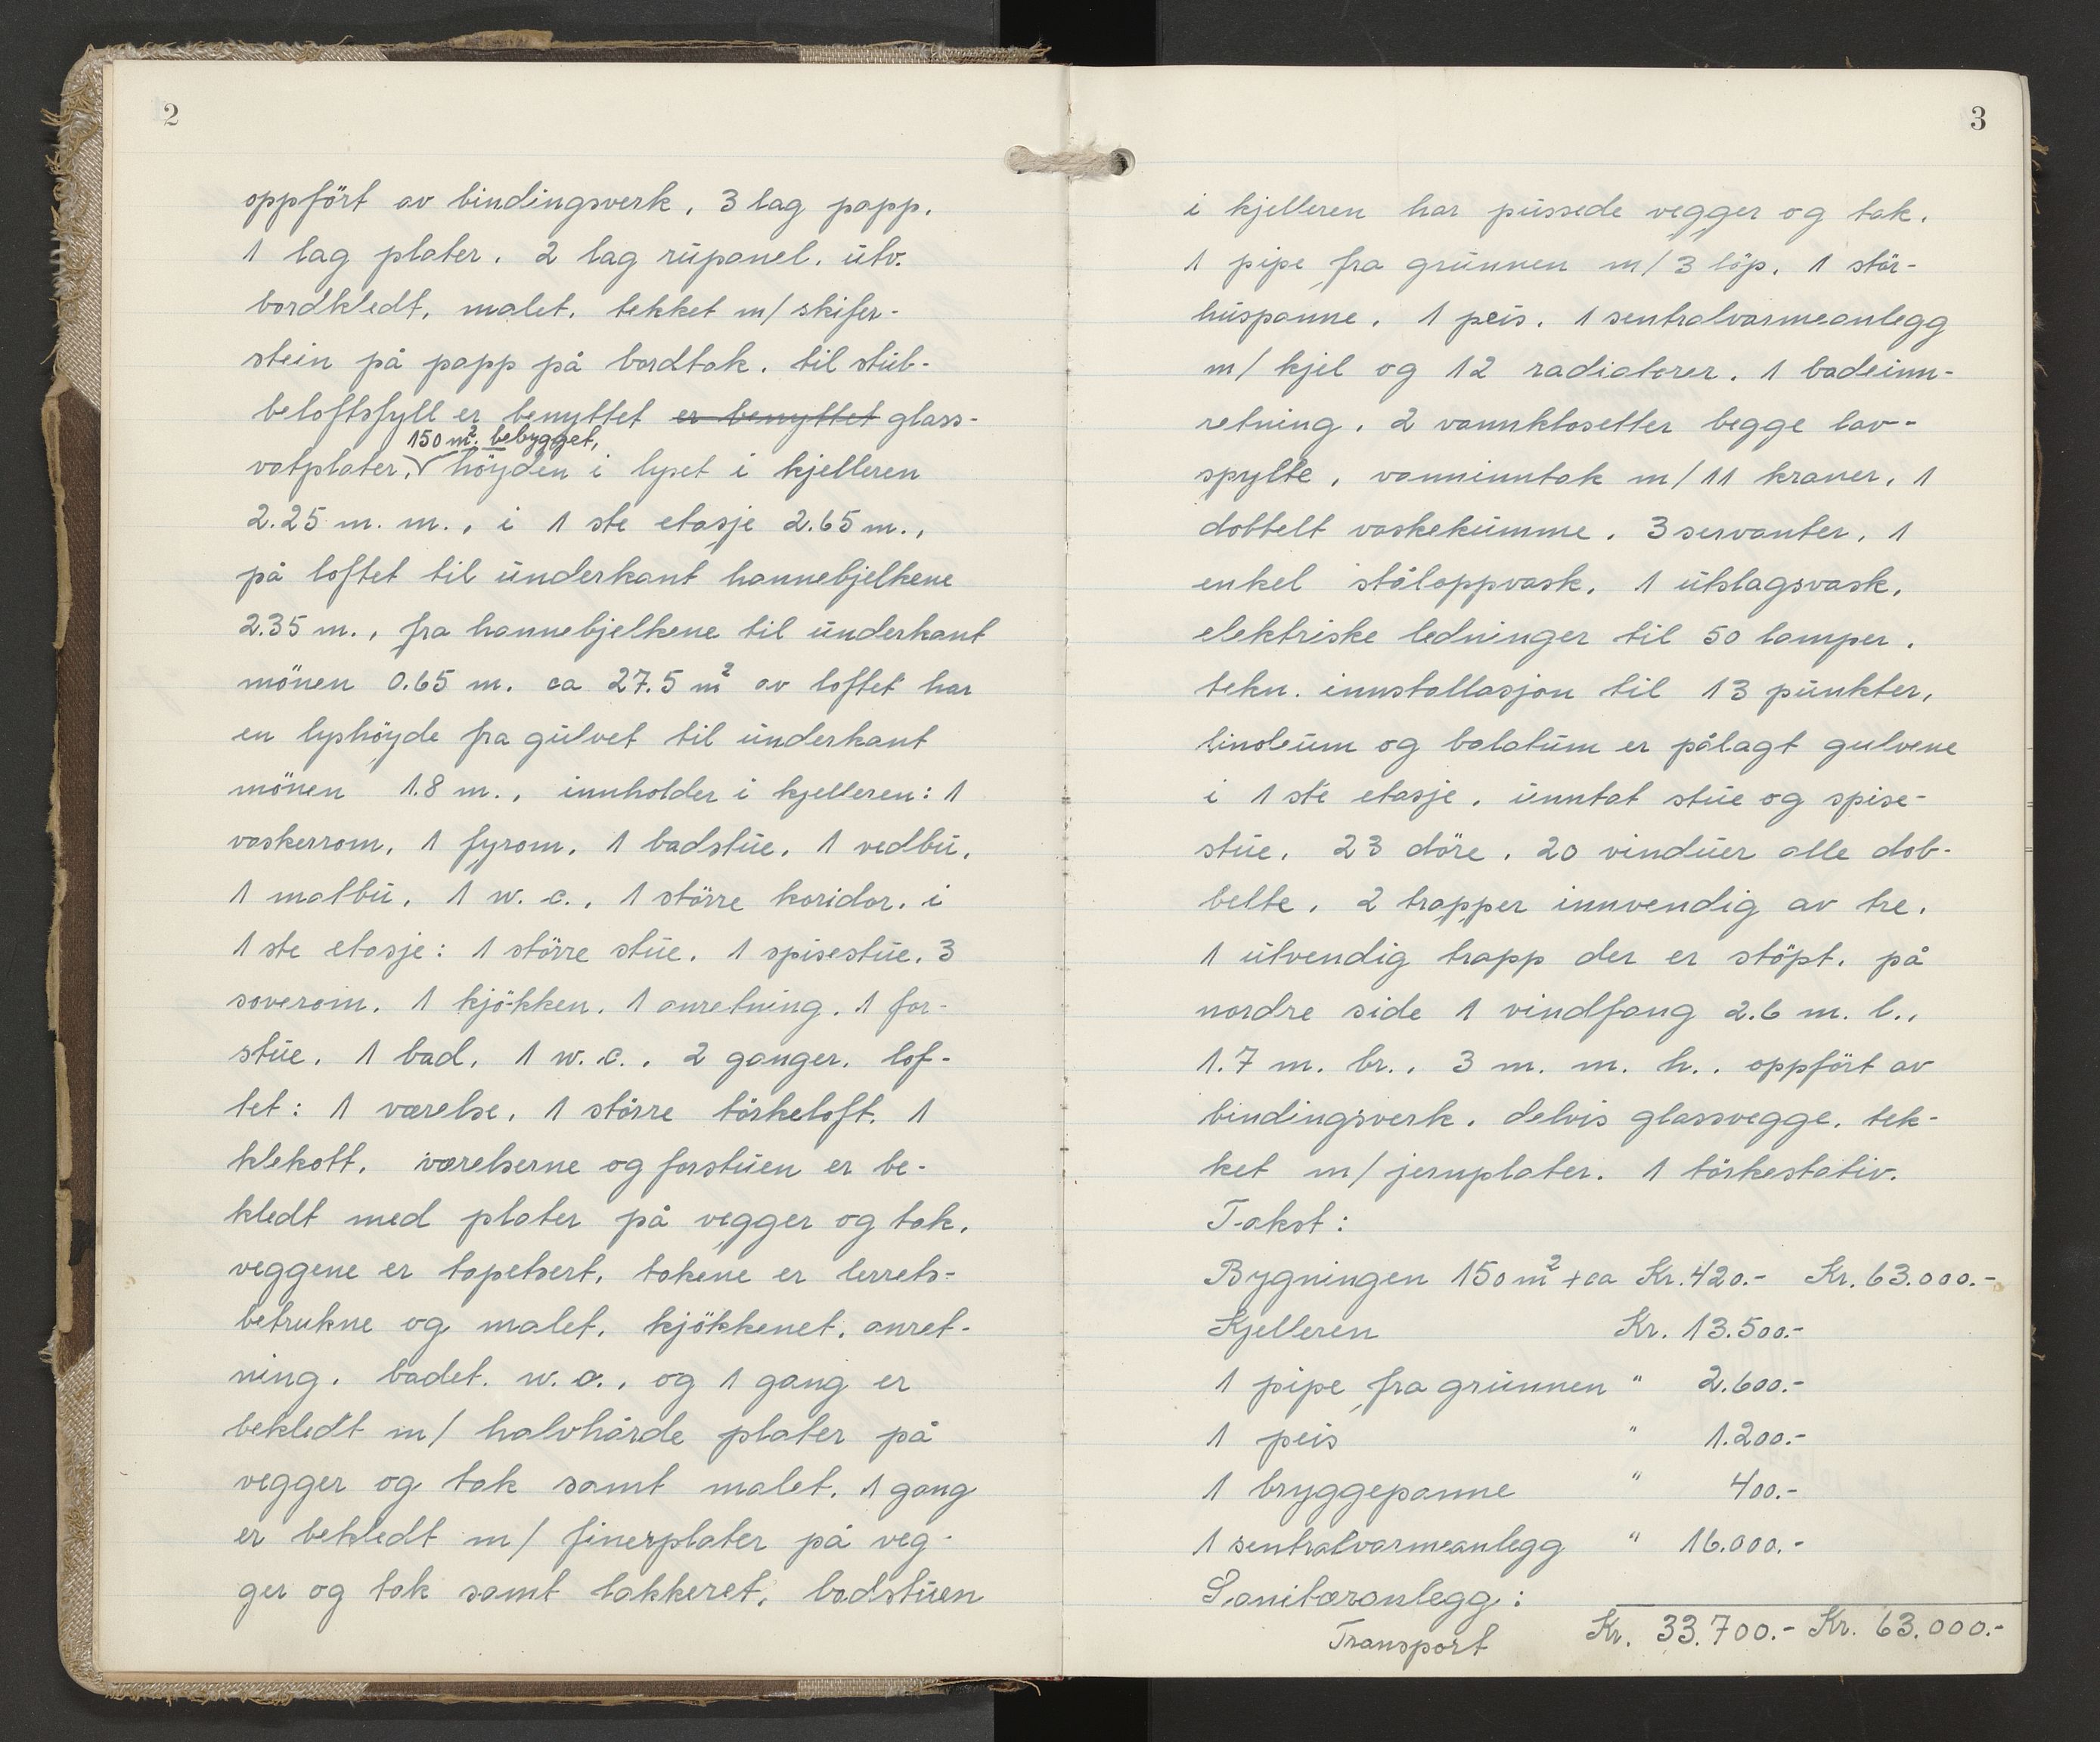 2
oppfört av bindingsverk, 3 lag papp,
1 lag plater, 2 lag rupanel, utv.
bordkledt, malet, tekket m/ skifer-
stein på papp på bordtak, til stub-
beloftsfyll er benyttet er benyttet glass-
150 m². bebygget,
vatplater, höyden i lyset i kjelleren
2.25 m. m., i 1 ste etasje 2.65 m.,
på loftet til underkant hannebjelkene
2.35 m., fra hannebjelkene til underkant
mönen 0.65 m. ca 27.5 m² av loftet har
en lyshöyde fra gulvet til underkant
mönen 1.8 m., innholder i kjelleren: 1
vaskerrom, 1 fyrom, 1 badstue, 1 vedbu,
1 matbu, 1 w. c., 1 större koridor, i
1 ste etasje: 1 större stue, 1 spisestue, 3
soverom, 1 kjökken, 1 anretning, 1 for-
stue, 1 bad, 1 w. c., 2 ganger, lof-
tet: 1 værelse, 1 större törkeloft, 1
klekott, værelserne og forstuen er be-
kledt med plater på vegger og tak,
veggene er tapetsert, takene er lerrets-
betrukne og malet, kjökkenet, anret-
ning, badet, w. c., og 1 gang er
bekledt m/ halvhårde plater på
vegger og tak samt malet, 1 gang
er bekledt m/ finerplater på veg-
ger og tak samt lakkeret, badstuen
3
i kjelleren har pussede vegger og tak,
1 pipe fra grunnen m/ 3 löp, 1 stör-
huspanne, 1 peis, 1 sentralvarmeanlegg
m/ kjel og 12 radiatorer, 1 badeinn-
retning, 2 vannklosetter begge lav-
spylte, vanninntak m/ 11 kraner, 1
dobbelt vaskekumme, 3 servanter, 1
enkel ståloppvask, 1 utslagsvask,
elektriske ledninger til 50 lamper,
tekn. innstallasjon til 13 punkter,
linoleum og balatum er pålagt gulvene
i 1 ste etasje, unntat stue og spise-
stue, 23 döre, 20 vinduer alle dob-
belte, 2 trapper innvendig av tre,
1 utvendig trapp der er stöpt, på
nordre side 1 vindfang 2.6 m. l.,
1.7 m. br., 3 m. m. h., oppfört av
bindingsverk, delvis glassvegge, tek-
ket m/ jernplater. 1 törkestativ.
Takst:
Bygningen 150 m² + ca Kr. 420.- Kr. 63.000.-
Kjelleren Kr. 13.500.-
1 pipe fra grunnen " 2.600.-
1 peis " 1.200.-
1 bryggepanne " 400.-
1 sentralvarmeanlegg " 16.000.-
Sanitæranlegg:
Transport Kr. 33.700.- Kr. 63.000.-